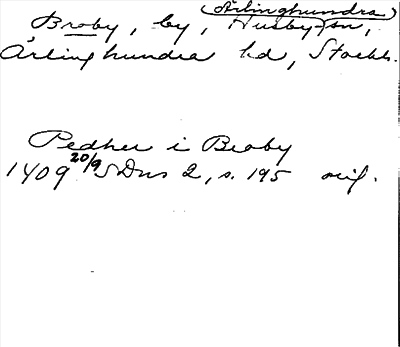 (Ärlinghundra)
Broby, by, Husby sn,
Ärlinghundra hd, Stockh.
Pedher i Broby
1409 20/9 SDns 2, s. 195 orig.